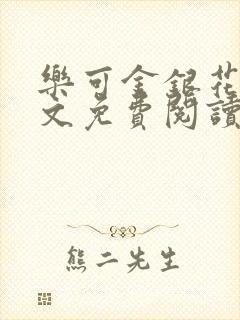 樂可金銀花
文免費閱讀
熊二先生